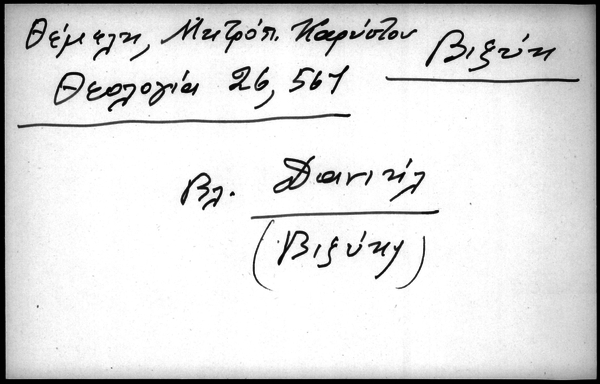 Θέμελη, Μητρόπ. Καρύστου
Βιζύη
Θεολογία 26, 561
Βλ. Δανιήλ
(Βιζύης)